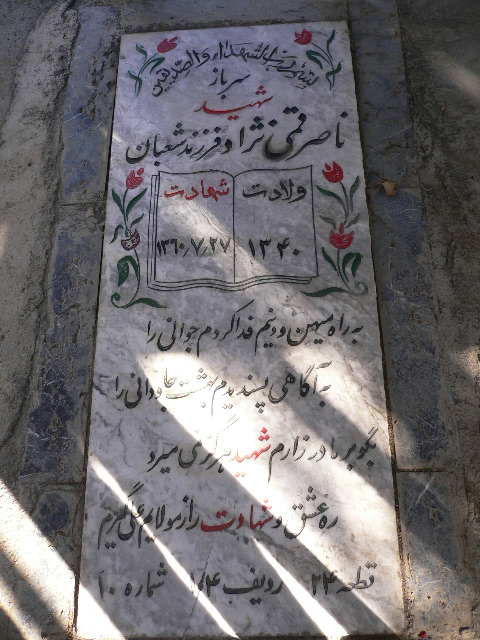 بسم رب الشهداء والصدیقین
سرباز
شهید
ناصر قمی نژاد فرزند شعبان
ولادت شهادت
۱۳۴۰ ۱۳۶۰/۷/۲۷
به راه میهن و دینم فدا کردم جوانی را
به آگاهی پسندیدم بهشت جاودانی را
بگو بر مادر زارم شهید هرگز نمی میرد
ره عشق و شهادت را ز مولایم علی گیرم
قطعه ۲۴ ردیف ۱۰۴ شماره ۱۰